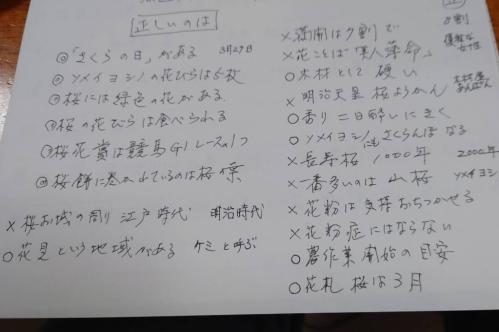 正しいのは
◎「さくらの日」がある 3月27日
◎ソメイヨシノの花びらは5枚
◎桜には緑色の花がある
桜の花びらは食べられる
桜花賞は競馬G1レースの1つ
◎桜餅に巻かれているのは桜葉
×桜お城の周り 江戸時代 明治時代
○花見という地域がある ケミと呼ぶ
×満開は9割で 8割
×花ことば「美人薄命」 優雅な女性
○木材として硬い
×明治天皇 桜ようかん 木村屋 あんぱん
○香り 二日酔いにきく
○ソメイヨシノにもさくらんぼなる
×長寿桜 1000年 2000年
×一番多いのは 山桜 ソメイヨシノ
×花粉は気持おちつかせる
×花粉症にはならない
○農作業開始の目安
○花札 桜は3月